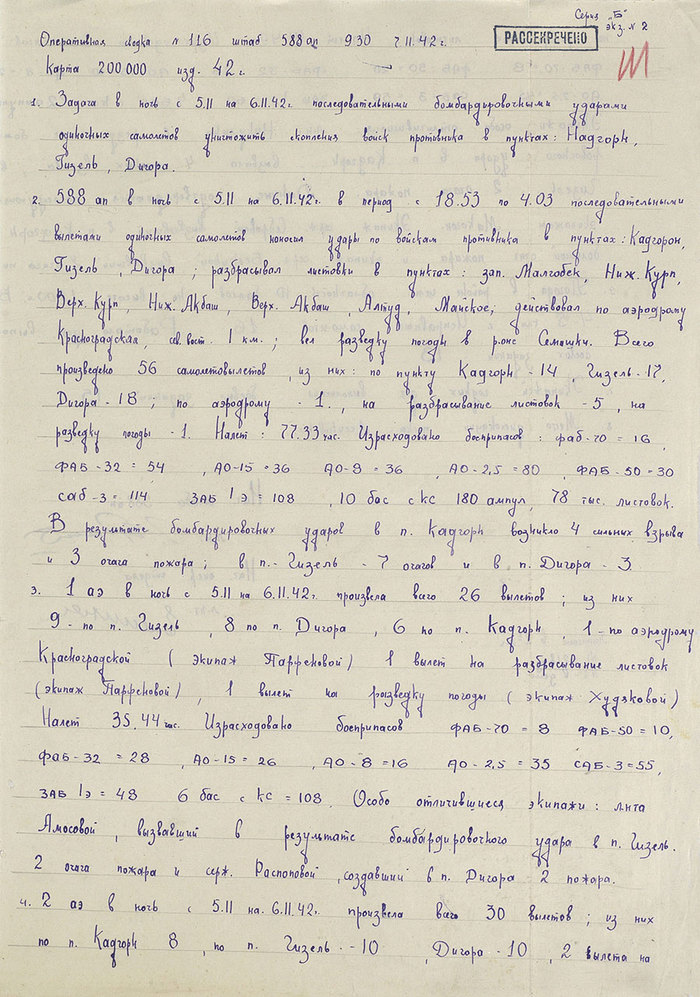 Серия "Б"
экз. N 2
РАССЕКРЕЧЕНО
Оперативная сводка N 116 штаб 588 ап 9.30 7.11.42 г.
Карта 200.000 изд. 42 г.
1. Задача в ночь с 5.11 на 6.11.42 г. последовательными бомбардировочными ударами
одиночных самолетов уничтожить скопления войск противника в пунктах: Надгорн,
Гизель, Дигора.
2. 588 ап в ночь с 5.11 на 6.11.42 г. в период с 18.53 по 4.03 последовательными
вылетами одиночных самолетов наносил удары по войскам противника в пунктах: Кадгорон,
Гизель, Дигора; разбрасывал листовки в пунктах: зап. Малгобек, Ниж. Курп,
Верх. Курп, Ниж. Акбаш, Верх. Акбаш, Алтуд, Майское; действовал по аэродрому
Красноградская, сев. вост. 1 км.; вел разведку погоды в роне Семашки. Всего
произведено 56 самолетовылетов, из них: по пункту Кадгорн - 14 Гизель - 17,
Дигора - 18; по аэродрому - 1., на разбрасывание листовок - 5, на
разведку погоды - 1. Налет: 77.33 час. Израсходовано боеприпасов: фаб-70 = 16,
ФАБ-32 = 54, АО-15 = 36 АО-8 = 36, АО-2,5 = 80, ФАБ-50 = 30
саб-3 = 114 ЗАБ 1э = 108, 10 бас с КС 180 ампул, 78 тыс. листовок.
В результате бомбардировочных ударов в п. Кадгорн возникло 4 сильных взрыва
и 3 очага пожара; в п. - Гизель - 7 очагов и в п. Дигора - 3
3. 1 аэ в ночь с 5.11 на 6.11.42 г. произвела всего 26 вылетов; из них
9 - по п. Гизель, 8 по п. Дигора, 6 по п. Кадгорн, 1 - по аэродрому
Красноградской (экипаж Парфеновой) 1 вылет на разбрасывание листовок
(экипаж Парфеновой), 1 вылет на розведку погоды (экипаж Худяковой)
Налет 35.44 час. Израсходовано боеприпасов ФАБ-70 = 8 ФАБ-50 = 10,
фаб-32 = 28, АО-15 = 26, АО-8 = 16 АО-2,5 = 35 САБ-3 = 55,
ЗАБ 1э = 48 6 бас с КС = 108. Особо отличившиеся экипажи: л-нта
Амосовой, вызвавший в результате бомбардировочного удара в п. Гизель.
2 очага пожара и серж. Распоповой, создавший в п. Дигора - 2 пожара.
4. 2 аэ в ночь с 5.11 на. 6.11.42 г. произвела всего 30 вылетов; из них
по п. Кадгорн 8, по п. Гизель - 10, Дигора - 10, 2 вылета на